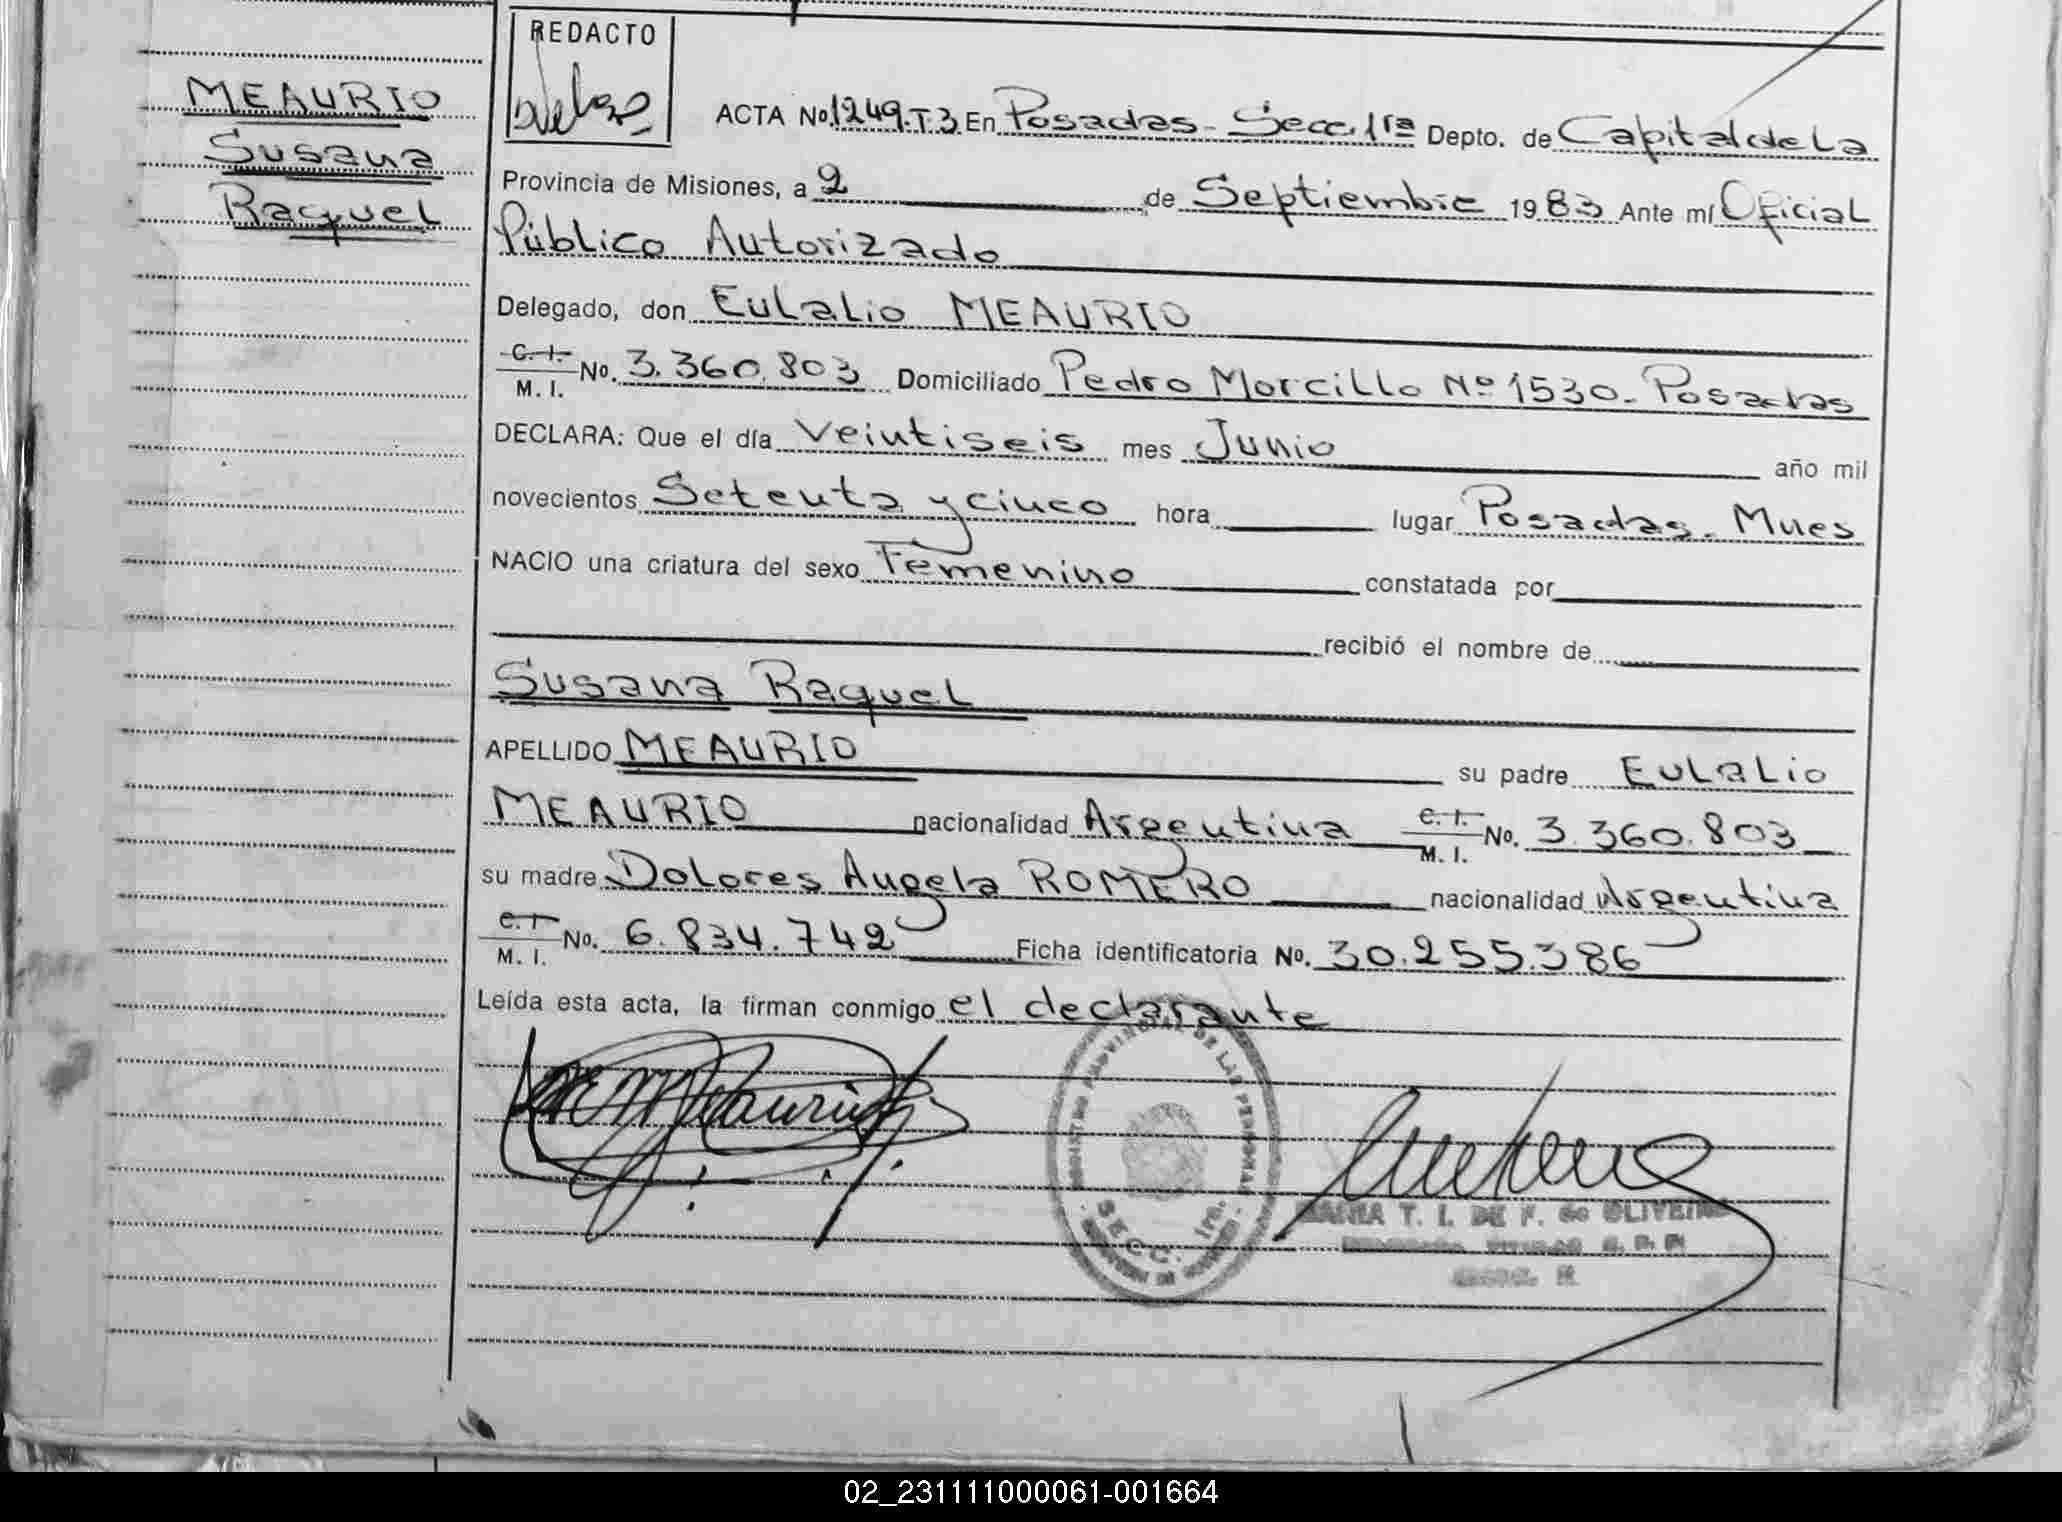 MEAURIO
Susana
Raquel
REDACTO
ACTA No. 1249.T.3. En Posadas - Secc. 1ra Depto. de Capital de La
Provincia de Misiones, a 2 de Septiembre 1983 Ante mí Oficial
Público Autorizado
Delegado, don Eulalio MEAURIO
C. I. M. I. No. 3.360.803 Domiciliado Pedro Morcillo Nº 1530 - Posadas
DECLARA: Que el día Veintiseis mes Junio año mil
novecientos Setenta y cinco hora lugar Posadas. Mnes
NACIO una criatura del sexo Femenino constatada por
recibió el nombre de
Susana Raquel
APELLIDO MEAURIO su padre Eulalio
MEAURIO nacionalidad Argentina C. I. M. I. No. 3.360.803
su madre Dolores Angela ROMERO nacionalidad Argentina
C. I. M. I. No. 6.834.742 Ficha identificatoria No. 30.255.386
Leída esta acta, la firman conmigo el declarante
REGISTRO PROVINCIAL DE LAS PERSONAS
SECC. 1ra.
MARIA T. I. DE F. de OLIVEIRA
02_231111000061-001664